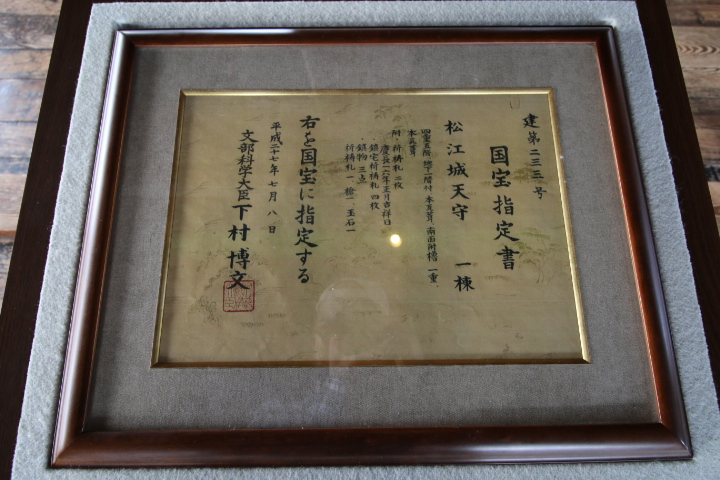 建第二三三号
国宝指定書
松江城天守 一棟
四重五階 地下一階付 本瓦葺 南面附櫓 一重
本瓦葺
附 祈祷札 二枚
慶長十六年正月吉祥日
鎮宅祈祷札 四枚
鎮物 三点
祈祷札一、槍一、玉石一
右を国宝に指定する
平成二十七年七月八日
文部科学大臣 下村博文